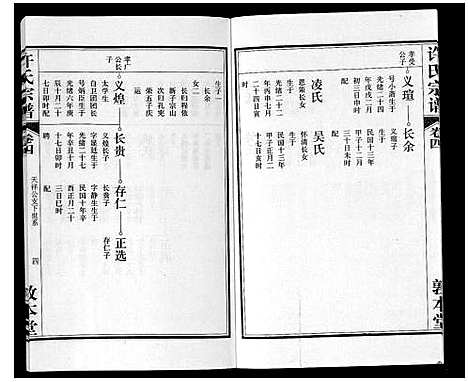 许氏宗谱
卷四
敦本堂
孝受公子
义瑄
长余
号小斋生于
光绪二十二
年戊戌二月
初三日申时
配
凌氏
恩荣长女
生于
光绪二十二
年丙申七月
二十四日寅
时
义瑄子
民国十三年
甲子十二月
三十日未时
配
吴氏
怀清长女
民国十三年
甲子十一月
十七日
生子一
长余
女二
长归程依
新子宗山
次归孔宪
荣五子庆
孝广公长子
义煌
长贵
存仁
正选
太学生
自卫团团长
号炳臣生于
光绪六年庚
辰十月二十
七日卯时
聘
义煌长子
字显廷生于
光绪二十七
年辛丑十月
十七日卯时
配
长贵子
字静生生于
民国十年辛
酉正月二十
三日巳时
配
存仁子
许氏宗谱
卷四
天祥公支下世系
四
敦本堂